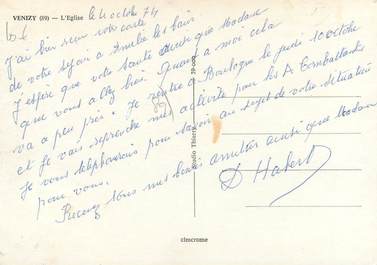 VENIZY (89) — L'Eglise
le 4 octobre 74
J'ai bien reçu votre carte
de votre séjour à Amélie les bains
J'espère que votre santé ainsi que Madame
que vous allez bien. Quant à moi cela
va à peu près. Je rentre à Boulogne le jeudi 10 octobre
et je vais reprendre mes activités pour les A Combattants
Je vous téléphonerais pour savoir au sujet de votre situation
pour vous.
Recevez tous mes amitiés ainsi que Madame
D Habert
Studio Thierry
cimcrome